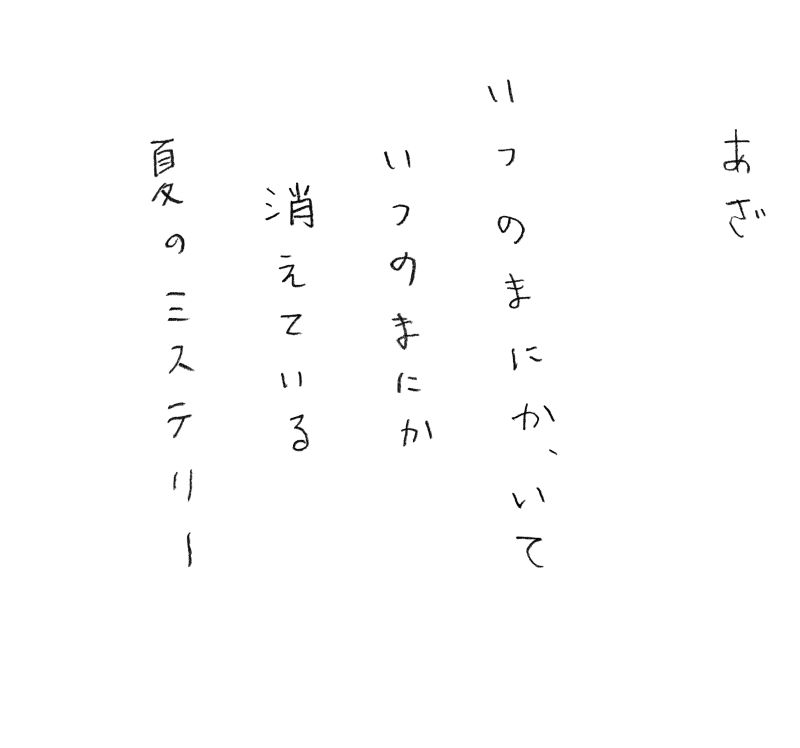 あざ
いつのまにか、いて
いつのまにか
消えている
夏のミステリー